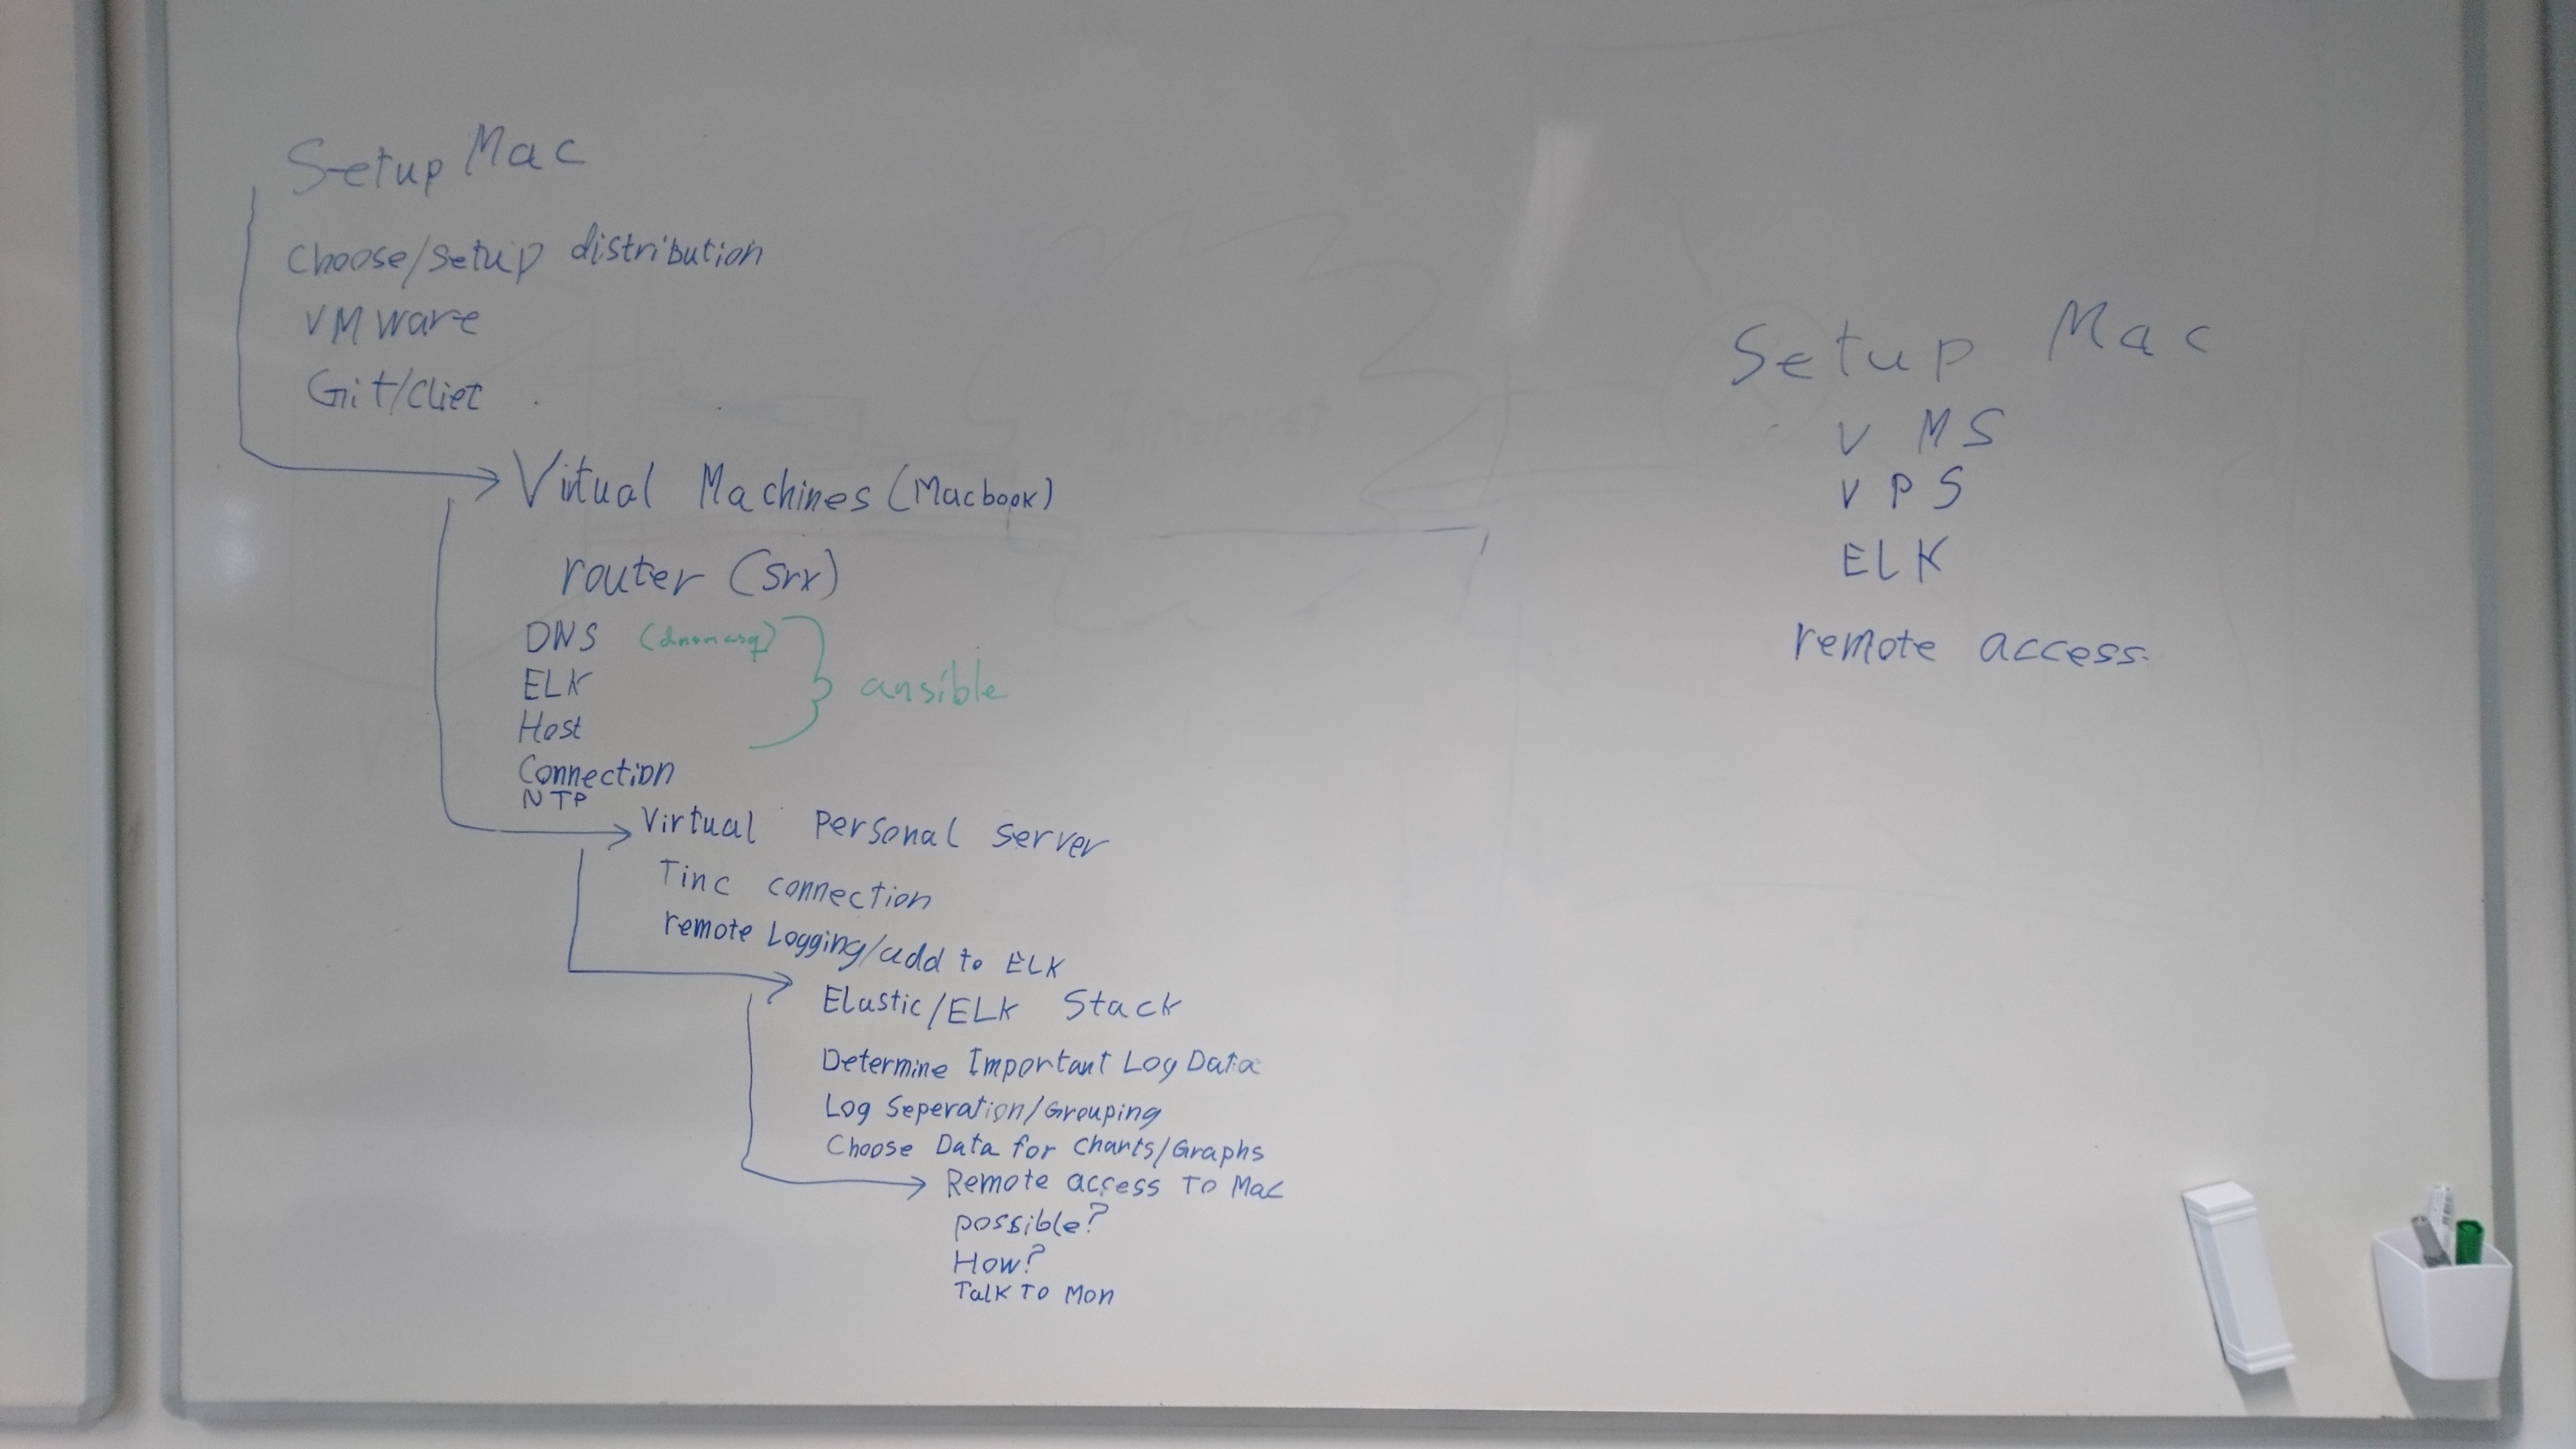 Setup Mac
Choose/setup distribution
VMware
Git/Cliet
Virtual Machines (Macbook)
router (srx)
DNS (dnsmasq)
ELK
Host
ansible
Connection
NTP
Virtual Personal Server
Tinc connection
remote Logging/add to ELK
Elastic/ELK Stack
Determine Important Log Data
Log Seperation/Grouping
Choose Data for Charts/Graphs
Remote access To Mac
possible?
How?
Talk To Mon
Setup Mac
VMS
VPS
ELK
remote access